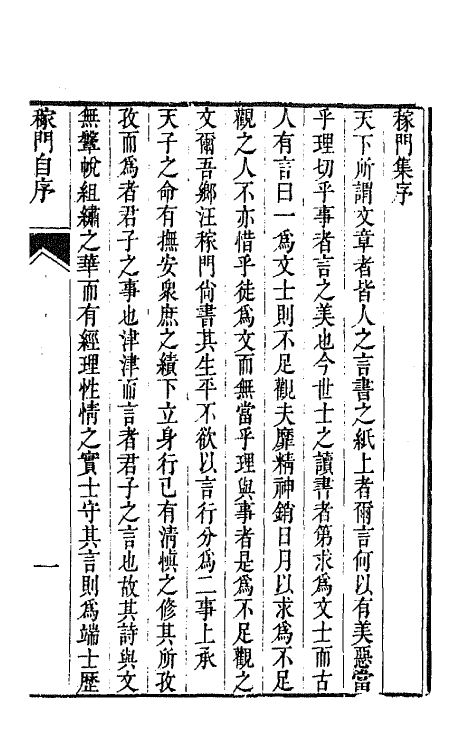 稼門集序
天下所謂文章者皆人之言書之紙上者爾言何以有美惡當
乎理切乎事者言之美也今世士之讀書者第求為文士而古
人有言曰一為文士則不足觀夫靡精神銷日月以求為不足
觀之人不亦惜乎徒為文而無當乎理與事者是為不足觀之
文爾吾鄉汪稼門尚書其生平不欲以言行分為二事上承
天子之命有撫安衆庶之績下立身行己有清慎之修其所孜
孜而為者君子之事也津津而言者君子之言也故其詩與文
無鞶帨組繡之華而有經理性情之實士守其言則為端士歷
稼門自序
一